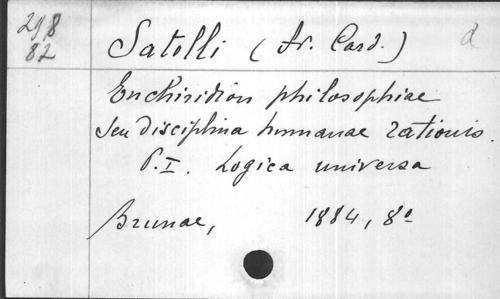 298
82
Satolli (Fr. Card.)
d
Enchiridion philosophiae
seu disciplina humanae rationis.
P. I. Logica universa
Brunae, 1884, 8°